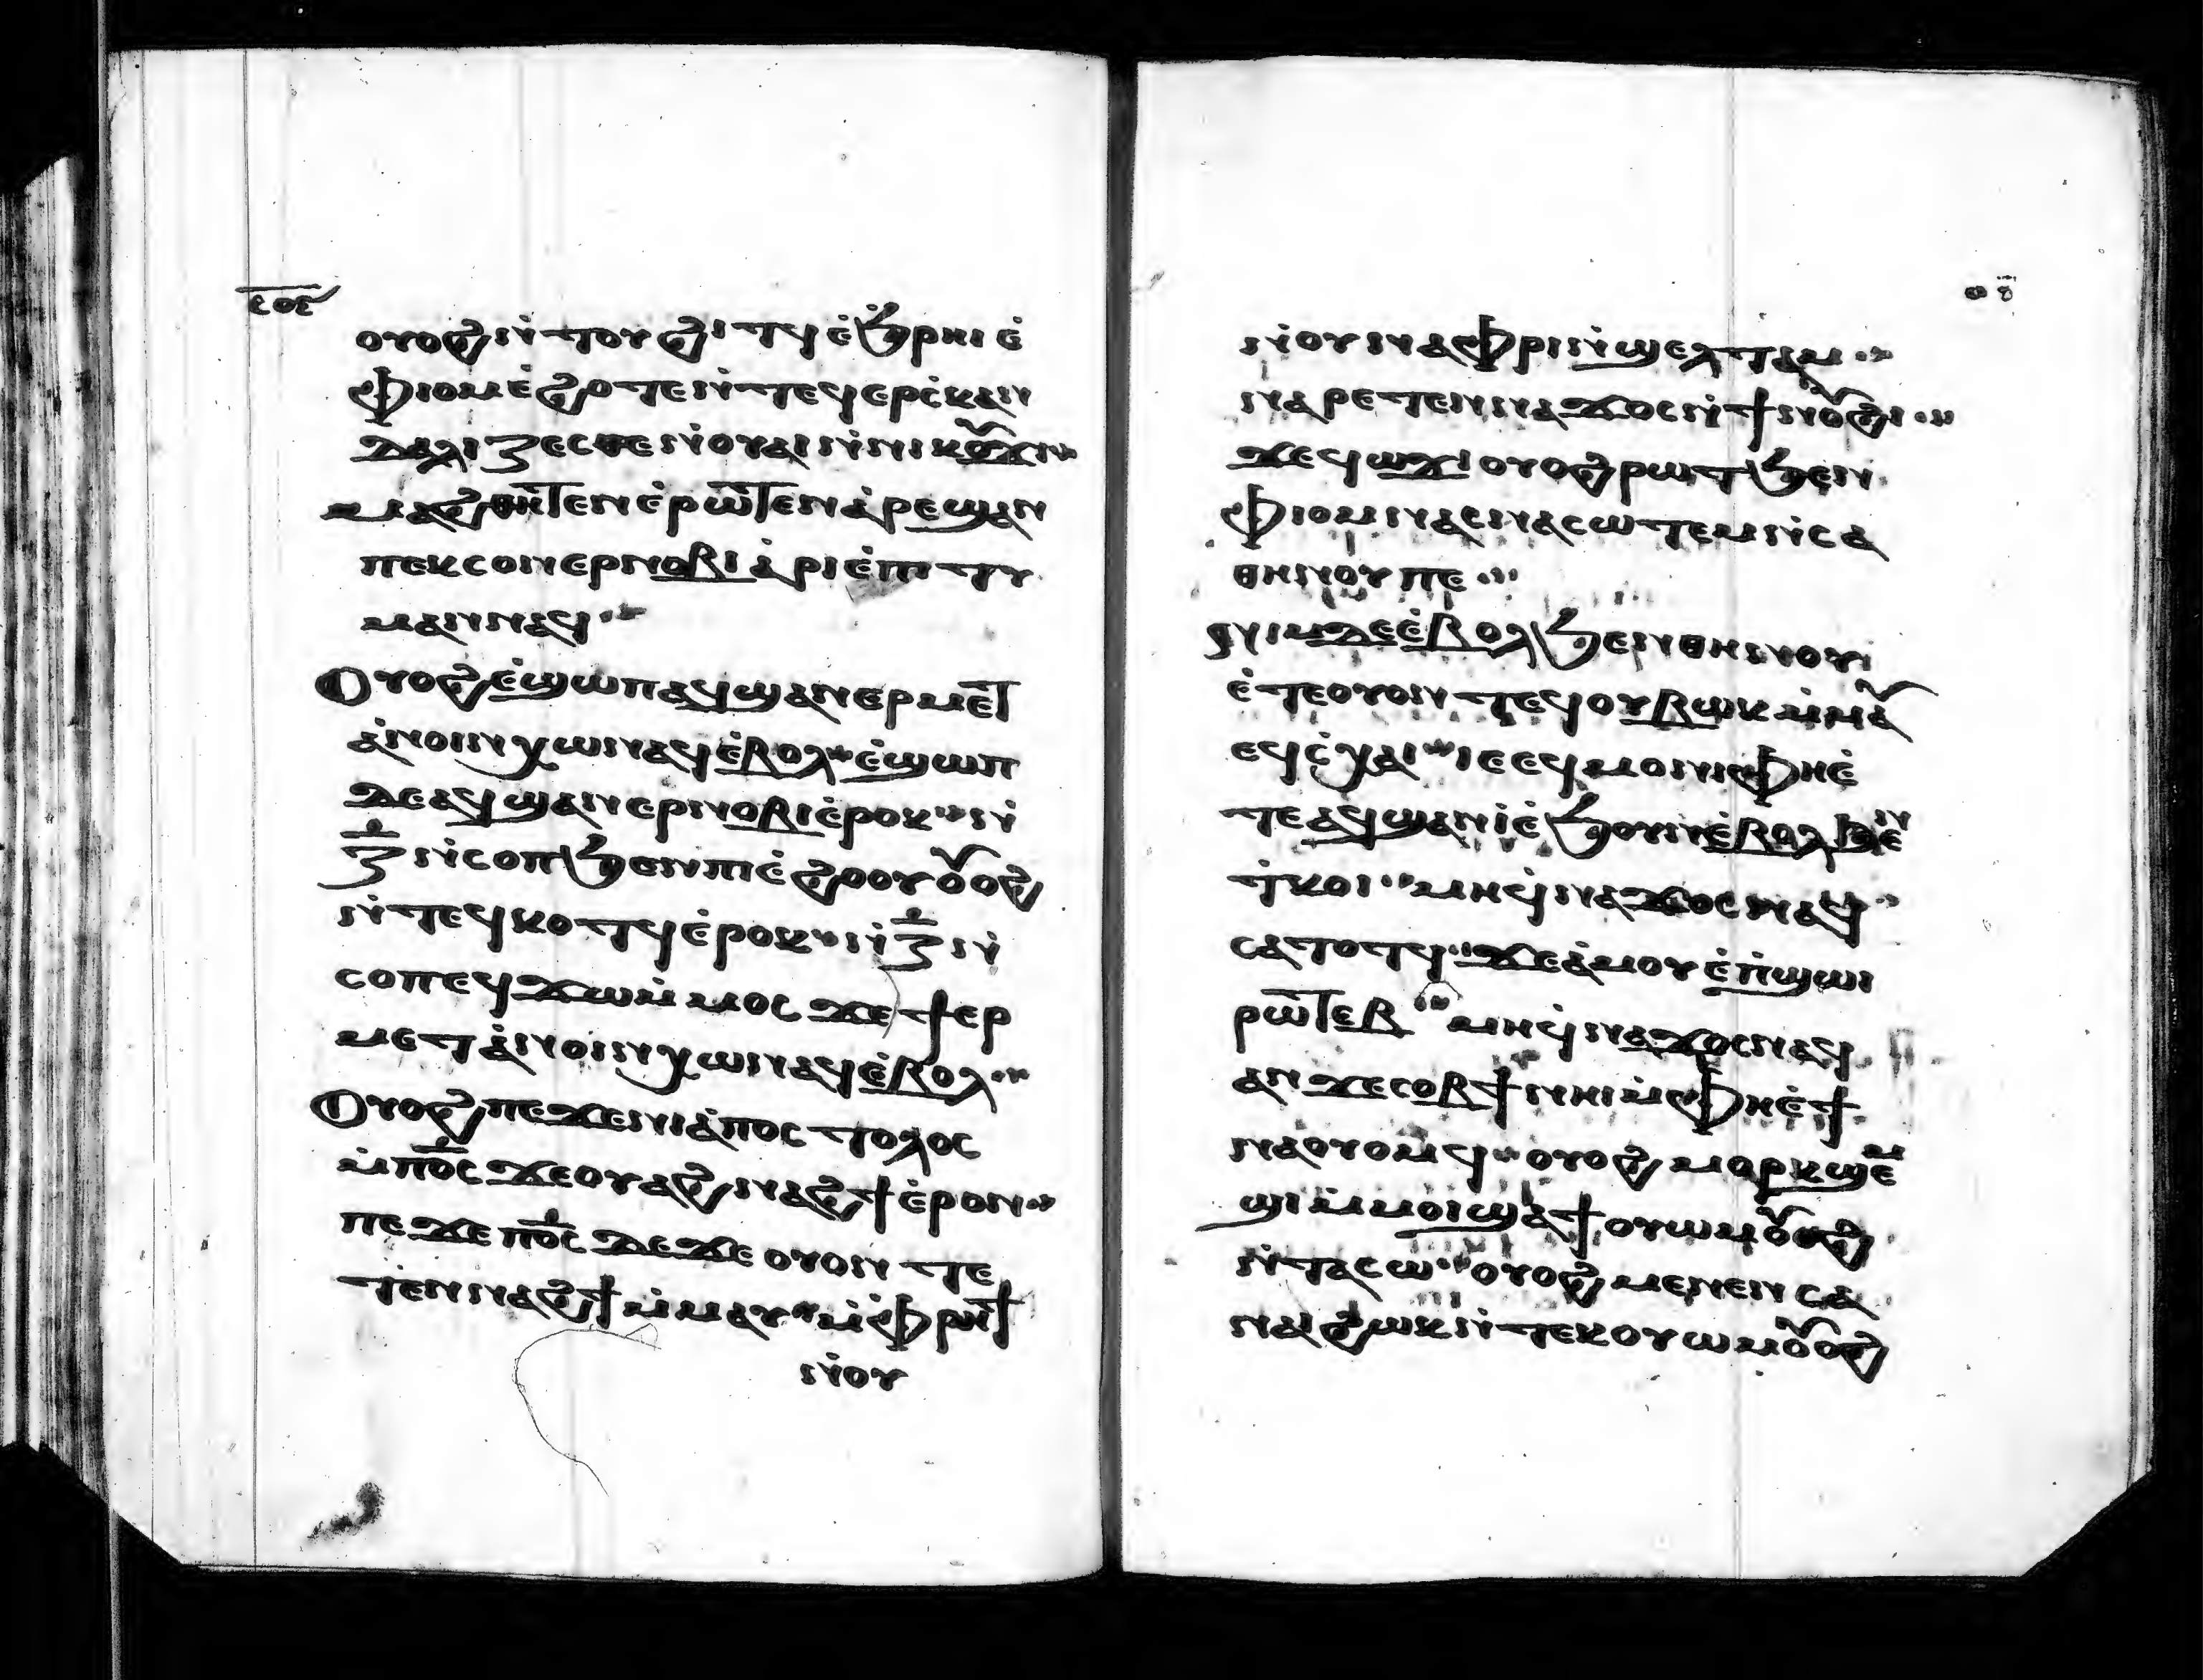 ⲥⲟⲉ
ⲟⲩⲟϩ ⲛ̇ⲧⲟⲩϩⲓⲧϥ ⲉ̇ϧ̇ⲣⲏⲓ ⲉ̇
ⲫⲓⲟⲙ ⲉ̇ϩⲟⲧⲉ ⲛ̇ⲧⲉϥⲉⲣⲥ̇ⲕⲁⲛ
ⲇⲁⲗⲓⲍⲉⲥⲑⲉ ⲛ̇ⲟⲩⲁⲓ ⲛ̇ⲛⲓⲕⲟⲩϫⲓ
ⲙⲁϩⲑⲏⲧⲉⲛ ⲉ̇ⲣⲱⲧⲉⲛ ⲁ̇ⲣⲉϣⲁⲛ
ⲡⲉⲕⲥⲟⲛ ⲉⲣⲛⲟⲃⲓ ⲁ̇ⲣⲓⲉ̇ⲡⲓⲧⲩ
ⲙⲁⲛ ⲛⲁϥ
Ⲟⲩⲟϩ ⲉ̇ϣⲱⲡ ⲁϥϣⲁⲛⲉⲣⲙⲉⲧ
ⲁ̇ⲛⲟⲓⲛ ⲭⲱ ⲛⲁϥ ⲉ̇ⲃⲟⲗ ⲉ̇ϣⲱⲡ
ⲇⲉ ⲁϥϣⲁⲛⲉⲣⲛⲟⲃⲓ ⲉ̇ⲣⲟⲕ ⲛ̇
ⲍ̅ ⲛ̇ⲥⲟⲡ ϧⲉⲛ ⲡⲓⲉ̇ϩⲟⲟⲩ ⲟⲩⲟϩ
ⲛ̇ⲧⲉϥⲕⲟⲧϥ ⲉ̇ⲣⲟⲕ ⲛ̇ⲍ̅ ⲛ̇
ⲥⲟⲡ ⲉϥϫⲱ ⲙ̇ⲙⲟⲥ ϫⲉ ϯⲉⲣ
ⲙⲉⲧⲁ̇ⲛⲟⲓⲛ ⲭⲱ ⲛⲁϥ ⲉ̇ⲃⲟⲗ
Ⲟⲩⲟϩ ⲡⲉϫⲉ ⲛⲓⲁ̇ⲡⲟⲥⲧⲟⲗⲟⲥ
ⲙ̇ⲡⲟ̅ⲥ̅ ϫⲉ ⲟⲩⲁϩ ⲛⲁϩϯ ⲉ̇ⲣⲟⲛ
ⲡⲉϫⲉ ⲡⲟ̅ⲥ̅ ⲇⲉ ϫⲉ ⲟⲩⲟⲛ ⲧⲉ
ⲧⲉⲛ ⲛⲁϩϯ ⲙ̇ⲙⲁⲩ ⲙ̇ⲫⲣⲏϯ
ⲛ̇ⲟⲩ
ⲛ̇ⲟⲩⲛⲁⲫⲣⲓ ⲛ̇ϣⲉⲗⲧⲁⲙ
ⲛⲁⲣⲉⲧⲉⲛⲛⲁϫⲟⲥ ⲛ̇ϯⲛⲟⲩϩⲓ
ϫⲉ ϥⲱϫⲓ ⲟⲩⲟϩ ⲣⲱⲧ ϧⲉⲛ
ⲫⲓⲟⲙ ⲛⲁⲥⲛⲁⲥⲱⲧⲉⲙ ⲛ̇ⲥⲁ
ⲑⲏⲛⲟⲩ ⲡⲉ
ⲛⲓⲙ ⲇⲉ ⲉ̇ⲃⲟⲗ ϧⲉⲛ ⲑⲏⲛⲟⲩ
ⲉ̇ⲧⲉ ⲟⲩⲟⲛ ⲧⲉϥ ⲟⲩⲃⲱⲕ ⲙ̇ⲙⲁⲩ
ⲉϥⲥ̇ⲭⲁⲓ ⲓⲉ ⲉϥⲙⲟⲛⲓ ⲫⲏⲉ̇
ⲧⲉ ⲁϥϣⲁⲛⲓ̇ ⲉ̇ϧⲟⲩⲛ ⲉ̇ⲃⲟⲗ ϧⲉⲛ
ⲧ̇ⲕⲟⲓ ⲙⲏ ϥ̇ⲛⲁϫⲟⲥ ⲛⲁϥ
ⲥⲁⲧⲟⲧϥ ϫⲉ ⲁ̇ⲙⲟⲩ ⲉ̇ⲡ̇ϣⲱⲓ
ⲣⲱⲧⲉⲃ ⲙⲏ ϥ̇ⲛⲁϫⲟⲥ ⲛⲁϥ
ⲁⲛ ϫⲉ ⲥⲟⲃϯ ⲛⲏⲓ ⲙ̇ⲫⲏⲉ̇ϯ
ⲛⲁⲟⲩⲟⲙϥ ⲟⲩⲟϩ ⲙⲟⲣⲕ ϣⲉⲙ
ϣⲓ ⲙ̇ⲙⲟⲓ ϣⲁϯⲟⲩⲱⲙ ⲟⲩⲟϩ
ⲛ̇ⲧⲁⲥⲱ ⲟⲩⲟϩ ⲙⲉⲛⲉⲛⲥⲁ
ⲛⲁⲓ ϩⲱⲕ ⲛ̇ⲧⲉⲕⲟⲩⲱⲙ ⲟⲩⲟϩ